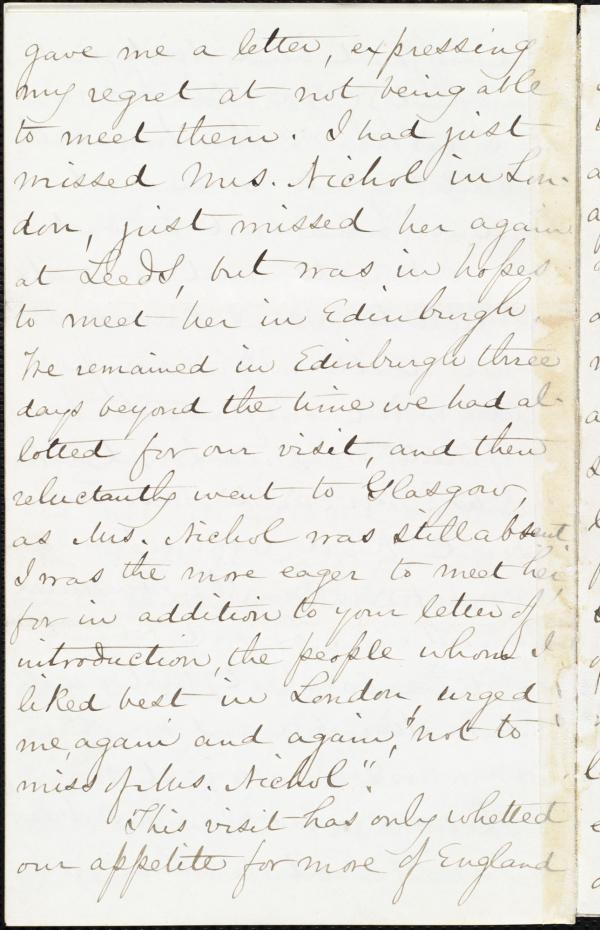 gave me a letter, expressing
my regret at not being able
to meet them. I had just
missed Mrs. Nichol in Lon-
don, just missed her again
at Leeds, but was in hopes
to meet her in Edinburgh.
We remained in Edinburgh three
days beyond the time we had al-
lotted for our visit, and then
reluctantly went to Glasgow,
as Mrs. Nichol was still absent
I was the more eager to meet her,
for in addition to your letter of
introduction, the people whom I
liked best in London, urged
me, again and again, "not to
miss of Mrs. Nichol".
This visit has only whetted
our appetite for more of England